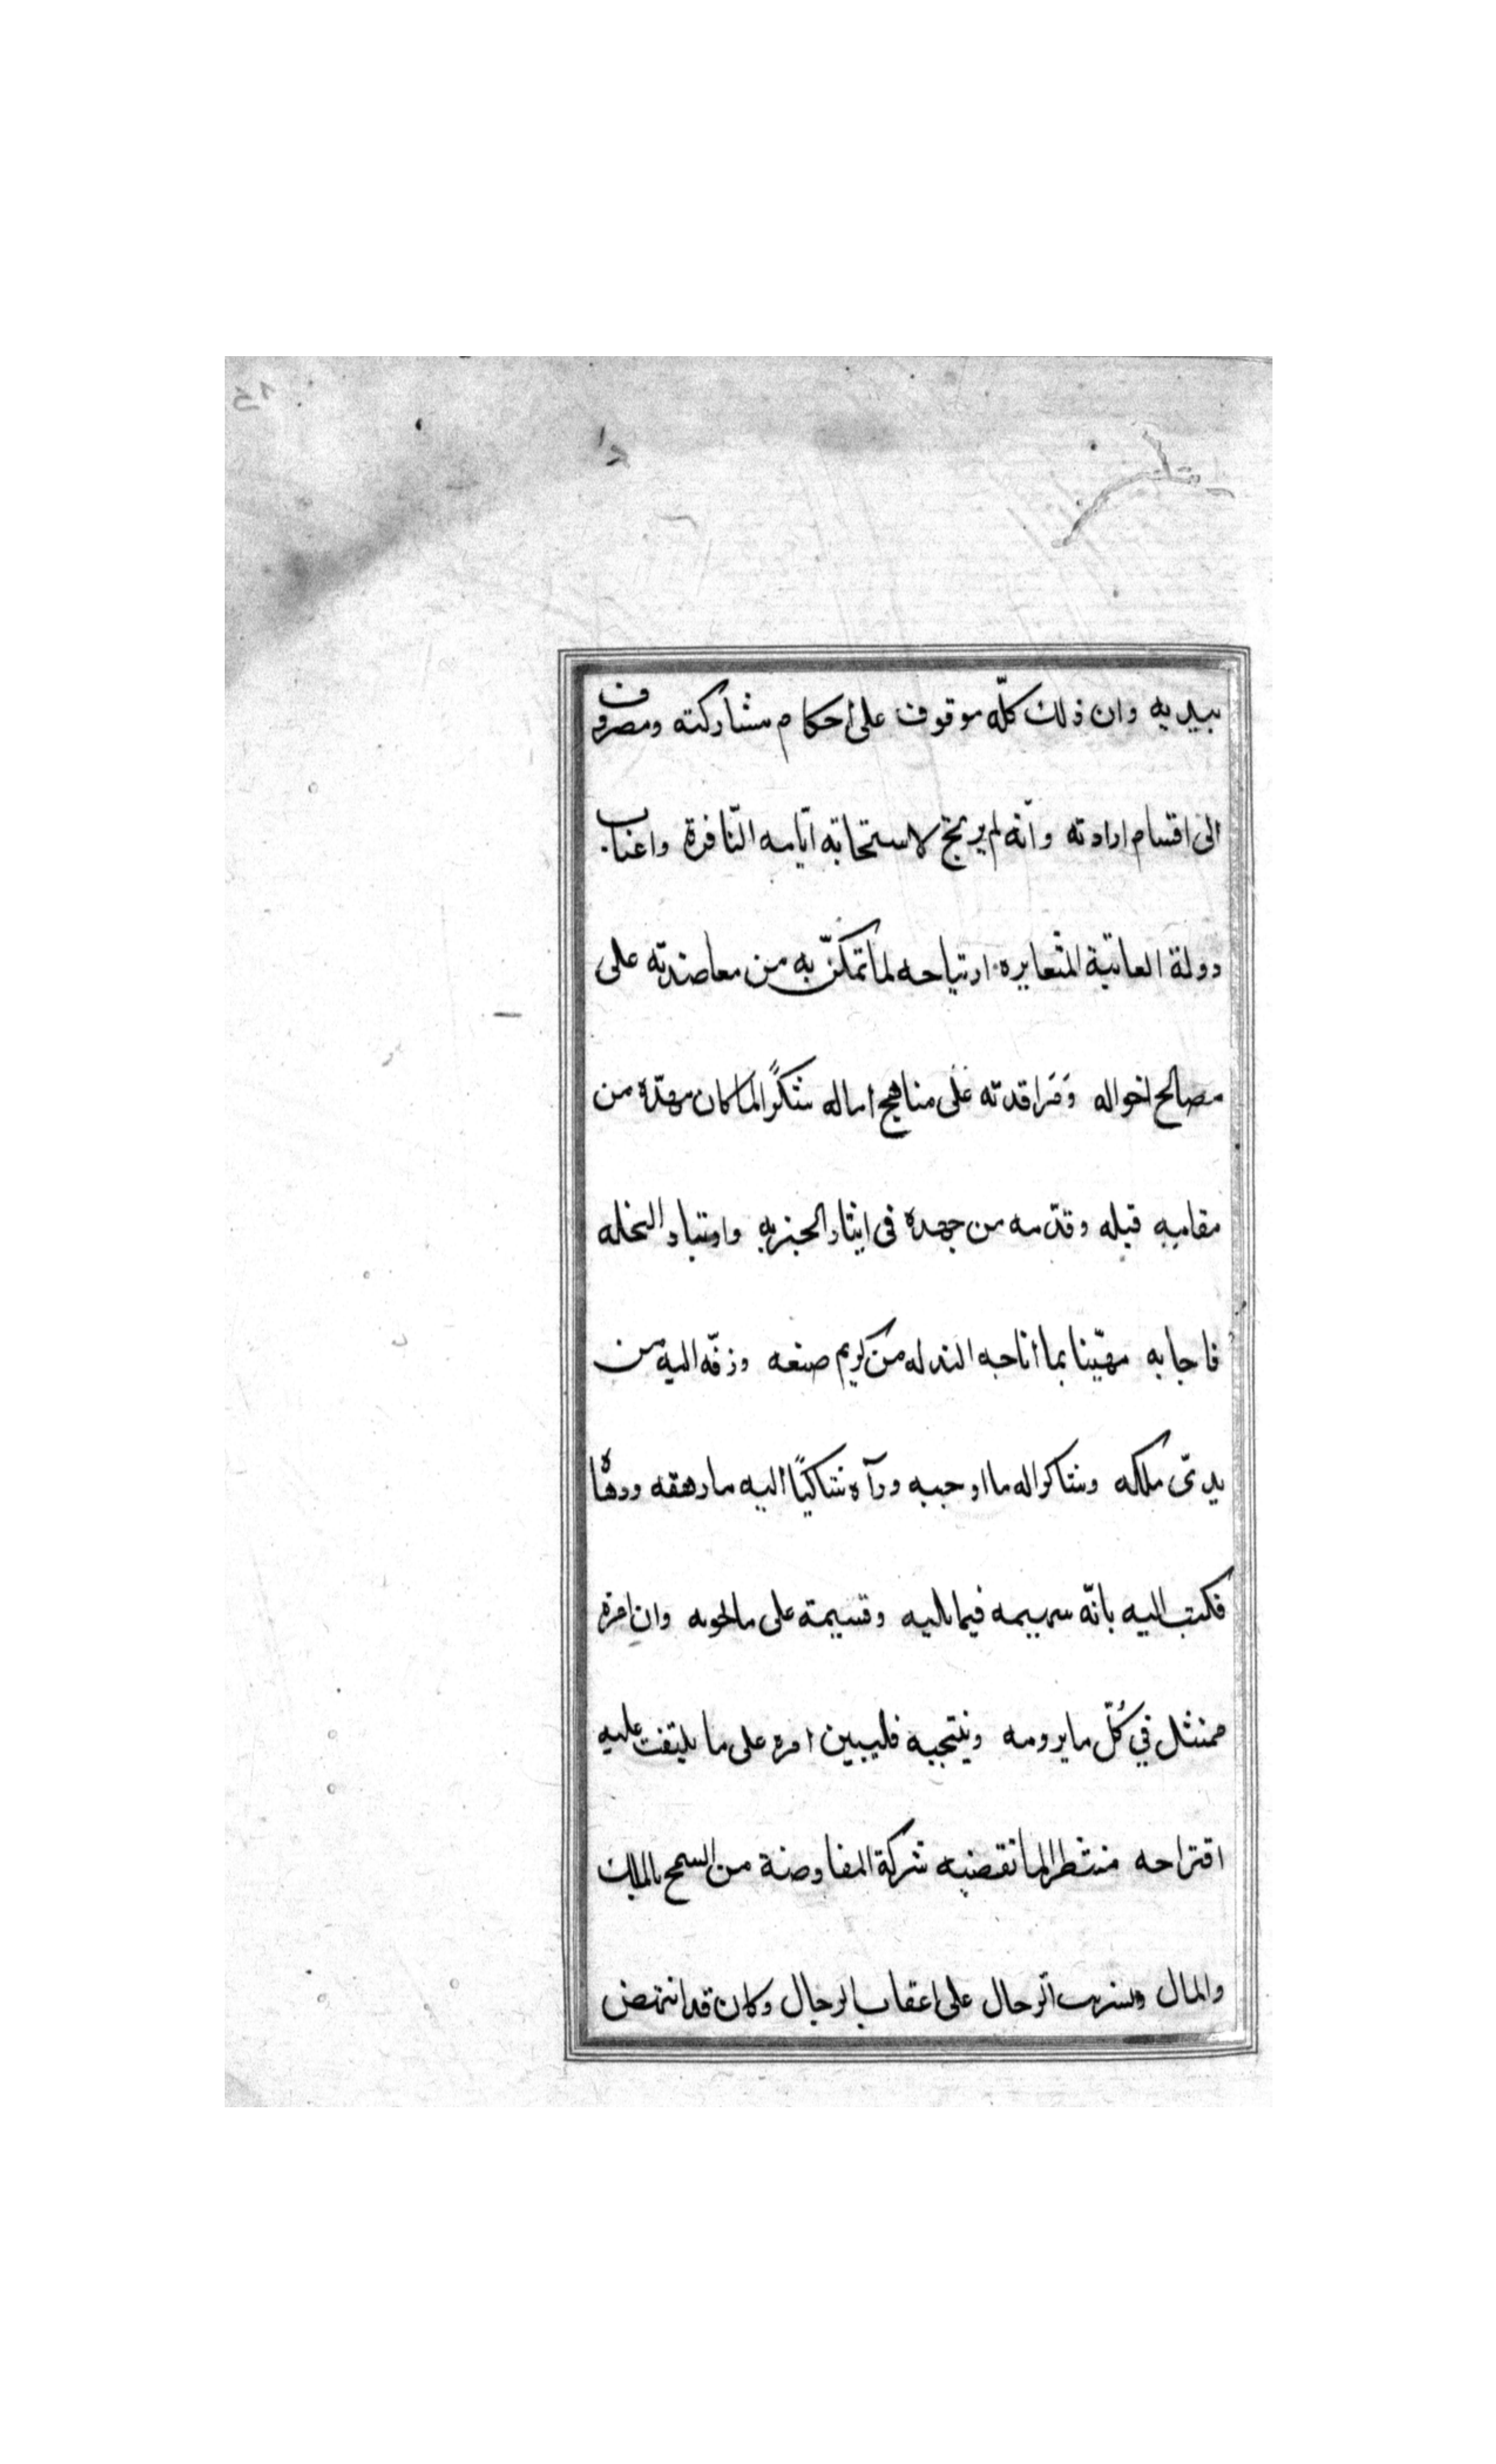 بيديه وان ذلك كلّه موقوف على احكام مشاركته ومصروف
الى اقسام ارادته وانّه لم يرتج لاستحابة ايّامه النّافرة واعتاب
دولة العاتبة المتعايره ارتياحه لما تمكّن به من معاضدته على
مصالح احواله ومرافدته على مناهج اماله شكرًا لما كان مهدّه من
مقاميه قبله وقدّمه من جهده في ايثار الحيز به واوتياد النحله
فاجابه مهيّنا بما اتاحه الله له من كريم صنعه وزفّه اليه من
يدىّ ملكه وشاكرا له ما اوجبه ورآه شاكيًا اليه ما رهقه ودهاه
فكتب اليه بانّه سهيمه فيما يليه وقسيمه على ما يحويه وان امره
ممتثل في كُلّ ما يرومه وينتجيه فليبين امره على ما يلتفت عليه
اقتراحه منتظرا لما تقضيه شركة المفاوضة من السمح بالملك
والمال وتسريب الرحال على اعقاب الرجال وكان قد انتهض